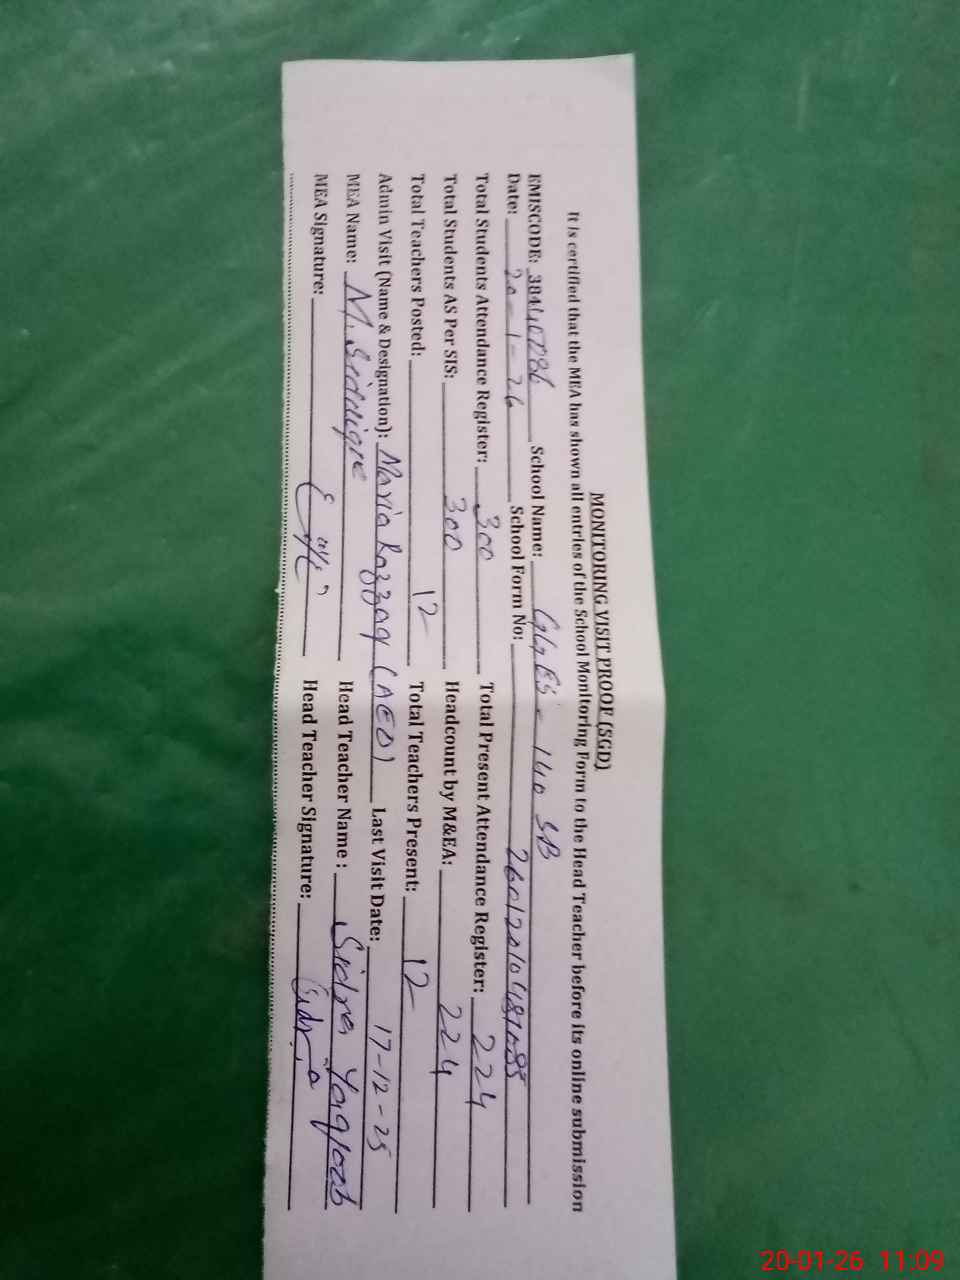 MONITORING VISIT PROOF (SGD)
It is certified that the MEA has shown all entries of the School Monitoring Form to the Head Teacher before its online submission
EMISCODE: 38440286 School Name: GGES - 140 SB
Date: 20-1-26 School Form No:
Total Students Attendance Register: 300 Total Present Attendance Register: 224
Total Students AS Per SIS: 300 Headcount by M&EA: 224
Total Teachers Posted: 12 Total Teachers Present: 12
Admin Visit (Name & Designation): Maria Razzaq (AEO) Last Visit Date: 17-12-25
MEA Name: M. Siddique Head Teacher Name : Sidra Yaqoob
MEA Signature: Head Teacher Signature: Sidra
20-01-26 11:09